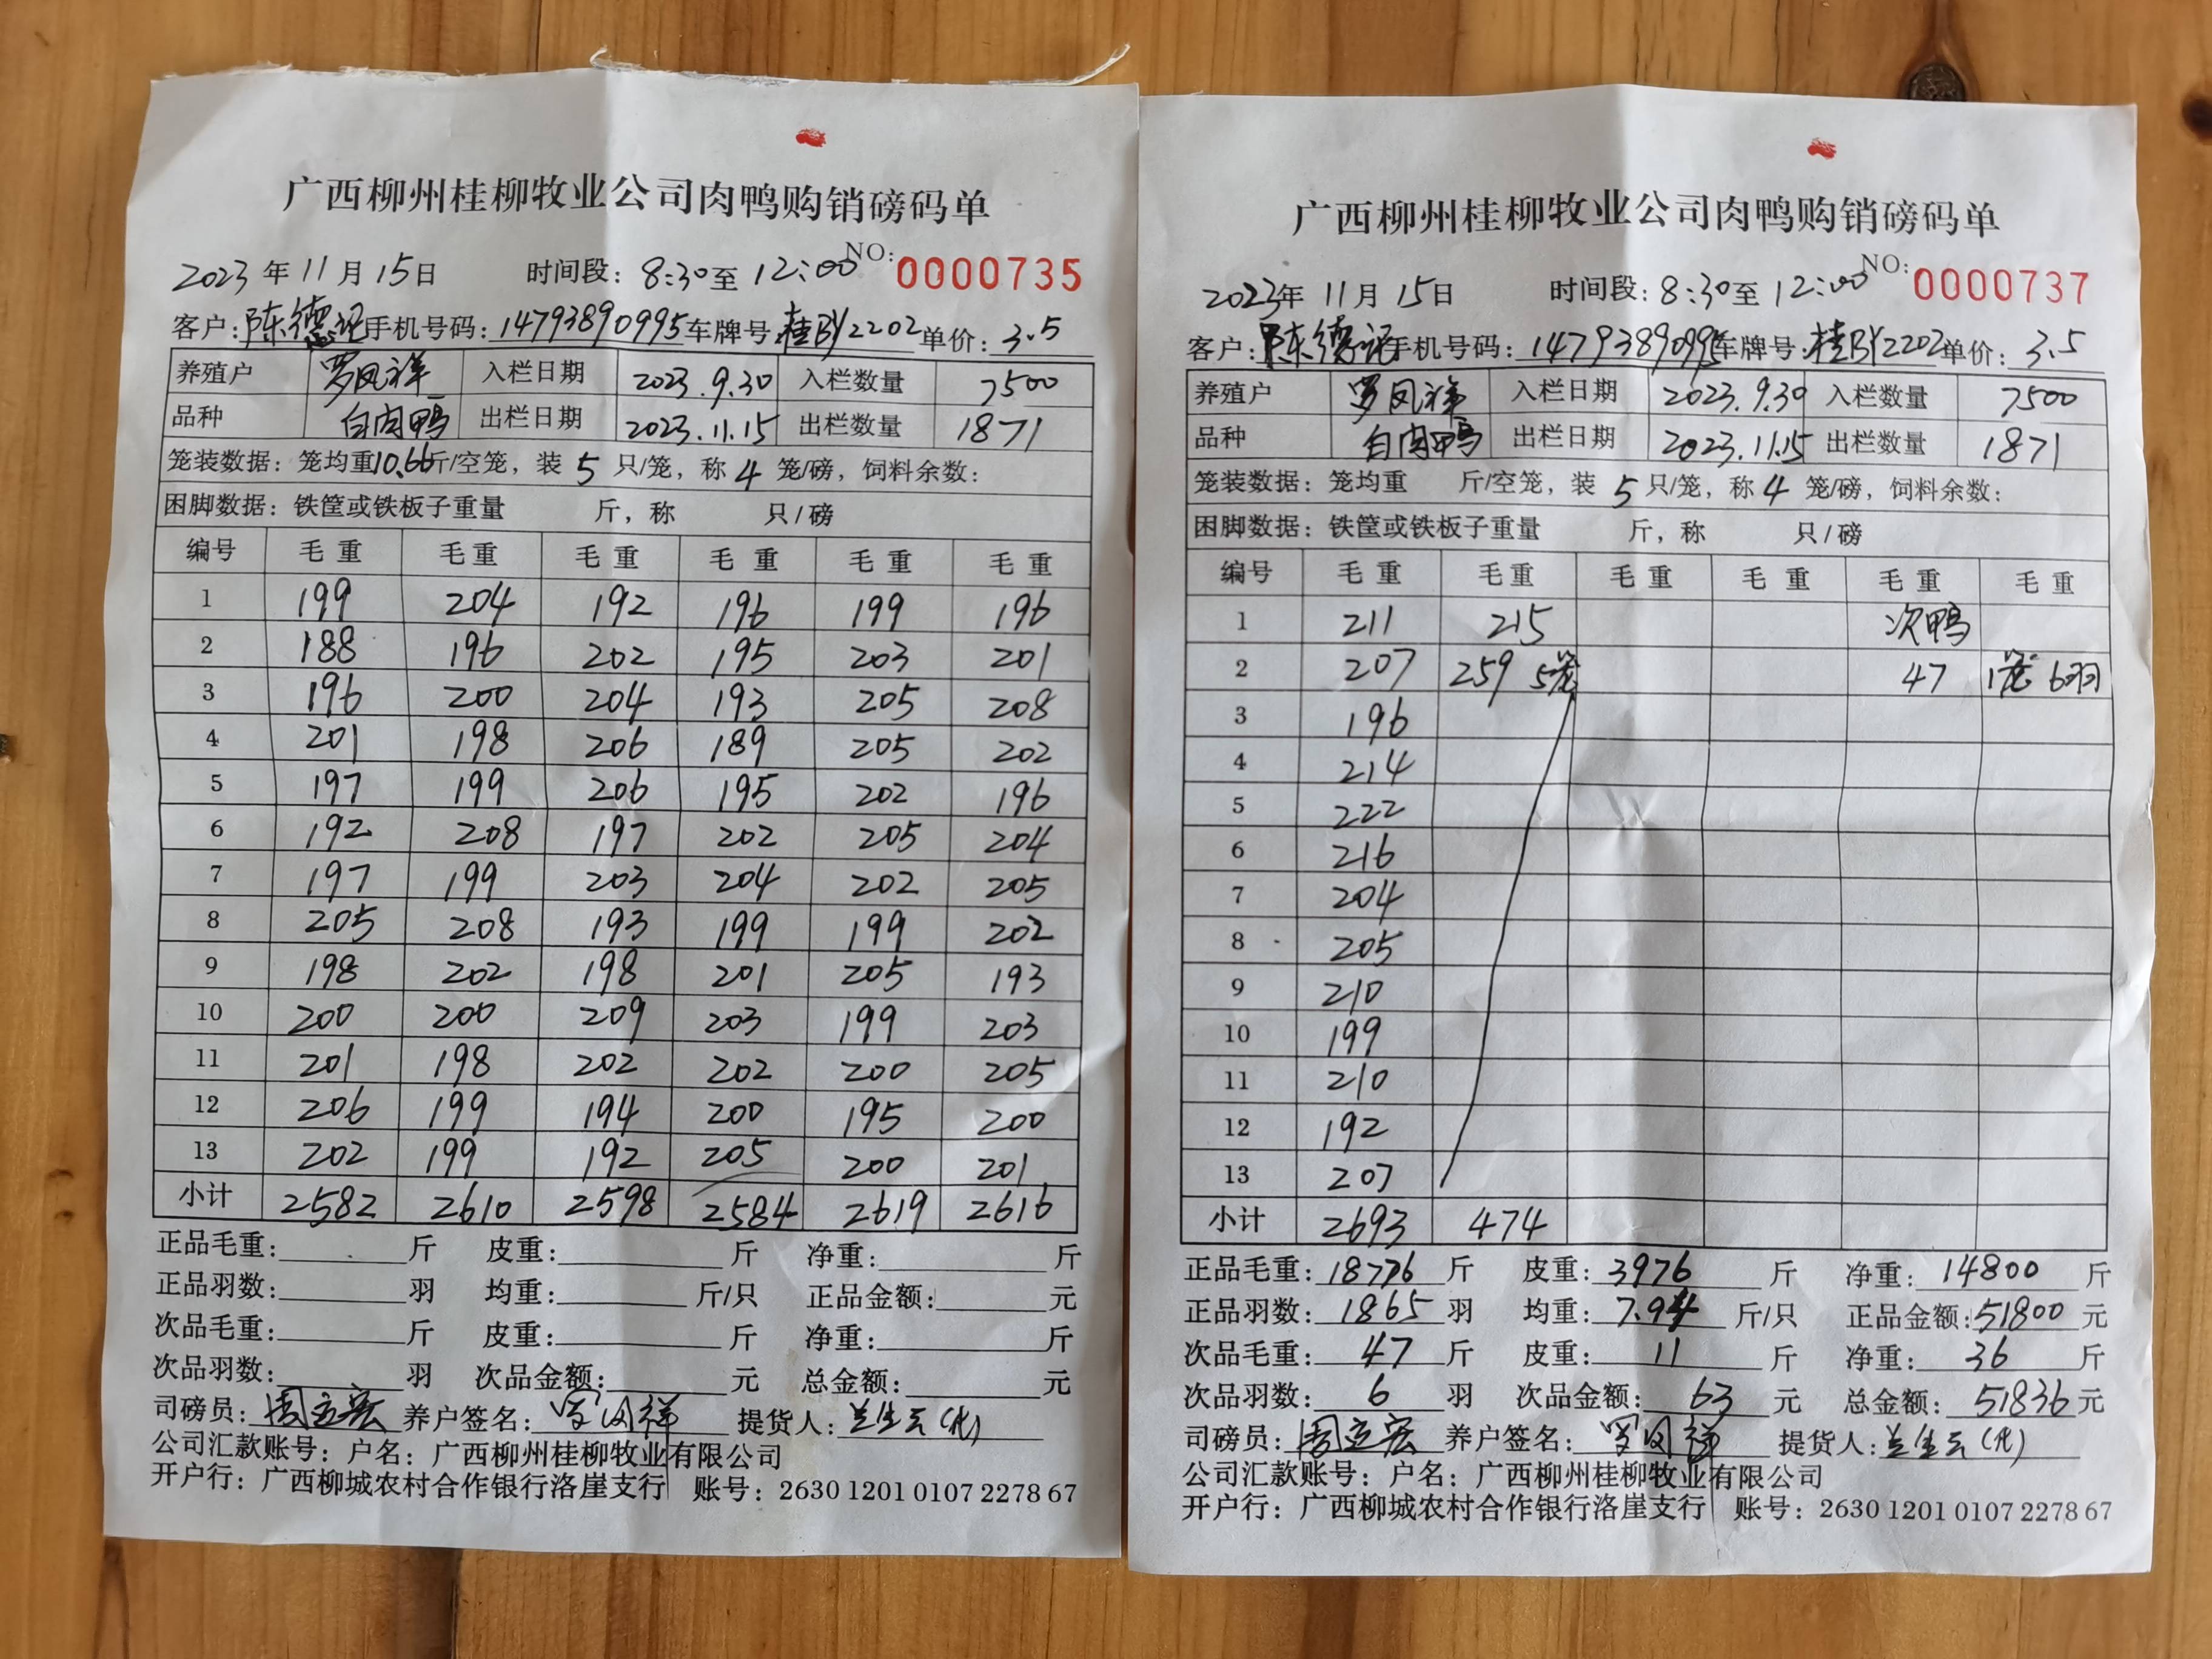 广西柳州桂柳牧业公司肉鸭购销磅码单
2023年11月15日 时间段：8:30至12:00 NO：0000735
客户：陈德记 手机号码：14793890995 车牌号：桂BY2202 单价：3.5
养殖户 罗凤祥 入栏日期 2023.9.30 入栏数量 7500
品种 白肉鸭 出栏日期 2023.11.15 出栏数量 1871
笼装数据：笼均重10.66斤/空笼，装5只/笼，称4笼/磅，饲料余数：
困脚数据：铁筐或铁板子重量 斤，称 只/磅
编号 毛重 毛重 毛重 毛重 毛重 毛重
1 199 204 192 196 199 196
2 188 196 202 195 203 201
3 196 200 204 193 205 208
4 201 198 206 189 205 202
5 197 199 206 195 202 196
6 192 208 197 202 205 204
7 197 199 203 204 202 205
8 205 208 193 199 199 202
9 198 202 198 201 205 193
10 200 200 209 203 199 203
11 201 198 202 202 200 205
12 206 199 194 200 195 200
13 202 199 192 205 200 201
小计 2582 2610 2598 2584 2619 2616
正品毛重： 斤 皮重： 斤 净重： 斤
正品羽数： 羽 均重： 斤/只 正品金额： 元
次品毛重： 斤 皮重： 斤 净重： 斤
次品羽数： 羽 次品金额： 元 总金额： 元
司磅员：周立宏 养户签名：罗凤祥 提货人：兰生云(代)
公司汇款账号：户名：广西柳州桂柳牧业有限公司
开户行：广西柳城农村合作银行洛崖支行 账号：2630 1201 0107 2278 67
广西柳州桂柳牧业公司肉鸭购销磅码单
2023年11月15日 时间段：8:30至12:00 NO：0000737
客户：陈德记 手机号码：14793890995 车牌号：桂BY2202 单价：3.5
养殖户 罗凤祥 入栏日期 2023.9.30 入栏数量 7500
品种 白肉鸭 出栏日期 2023.11.15 出栏数量 1871
笼装数据：笼均重 斤/空笼，装5只/笼，称4笼/磅，饲料余数：
困脚数据：铁筐或铁板子重量 斤，称 只/磅
编号 毛重 毛重 毛重 毛重 毛重 毛重
1 211 215 次鸭
2 207 259 5笼 47 1笼 6羽
3 196
4 214
5 222
6 216
7 204
8 205
9 210
10 199
11 210
12 192
13 207
小计 2693 474
正品毛重：18776斤 皮重：3976斤 净重：14800斤
正品羽数：1865羽 均重：7.94斤/只 正品金额：51800元
次品毛重：47斤 皮重：11斤 净重：36斤
次品羽数：6羽 次品金额：63元 总金额：51836元
司磅员：周立宏 养户签名：罗凤祥 提货人：兰生云(代)
公司汇款账号：户名：广西柳州桂柳牧业有限公司
开户行：广西柳城农村合作银行洛崖支行 账号：2630 1201 0107 2278 67